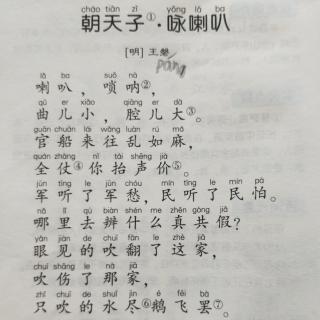 cháo tiān zǐ yǒng lǎ ba
朝天子①·咏喇叭
[明] 王磐
páng
lǎ ba suǒ nà
喇叭，唢呐②，
qǔ ér xiǎo qiāng ér dà
曲儿小，腔儿大③。
guān chuán lái wǎng luàn rú má
官船来往乱如麻，
quán zhàng nǐ tái shēng jià
全仗④你抬声价⑤。
jūn tīng le jūn chóu mín tīng le mín pà
军听了军愁，民听了民怕。
nǎ lǐ qù biàn shén me zhēn gòng jiǎ
哪里去辨什么真共假？
yǎn jiàn de chuī fān le zhè jiā
眼见的吹翻了这家，
chuī shāng le nà jiā
吹伤了那家，
zhǐ chuī de shuǐ jìn é fēi bà
只吹的水尽⑥鹅飞罢⑦。